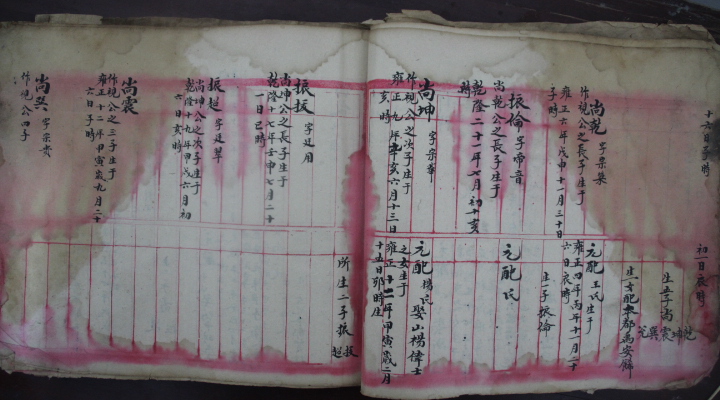 十六日子時
初一日辰時
生五子尚
乾坤震巽兑
尚乾 字宗集
作視公之長子生于
雍正六年戊申十一月三十日
子時
元配 王氏生于
雍正四年丙午十一月二十
六日辰時
生一子振倫
振倫 字啼音
尚乾公之長子生于
乾隆二十一年七月初十亥
時
元配 氏
尚坤 字宗華
作視公之次子生于
雍正九年辛亥六月十三日
亥時
元配 楊氏 娶山楊偉士
之女生于
雍正十二年甲寅歲二月
十五日卯時
振拔 字廷用
尚坤公之長子生于
乾隆十七年壬申七月二十
一日巳時
所生二子振
拔超
振超 字廷翠
尚坤公之次子生于
乾隆十九年甲戌六月初
六日亥時
尚震
作視公之三子生于
雍正十二年甲寅九月二十
六日子時
尚巽 字宗貴
作視公四子